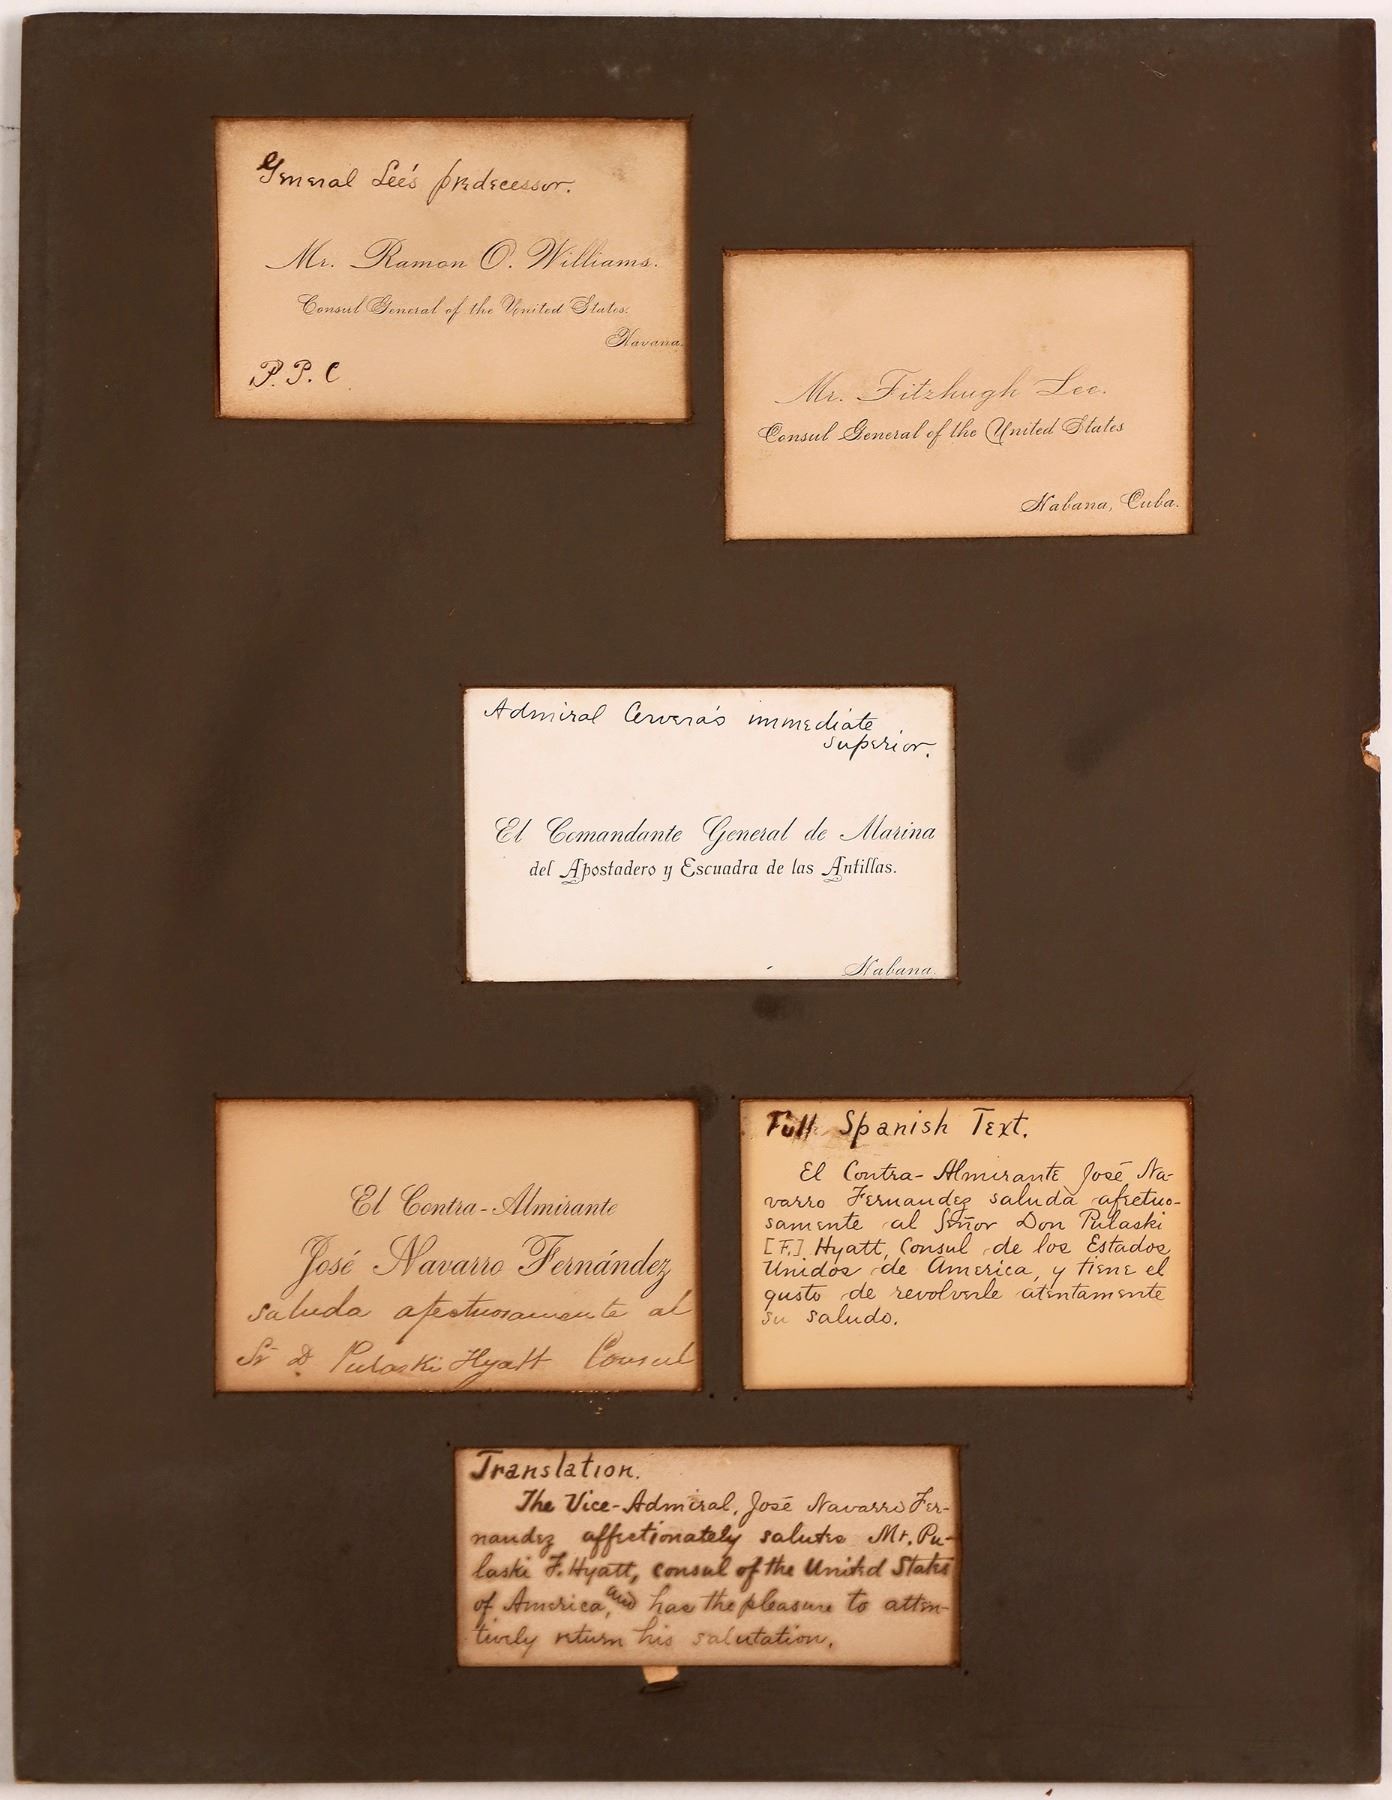 General Lee's predecessor.
Mr. Ramon O. Williams.
Consul General of the United States.
Havana.
P. P. C
Mr. Fitzhugh Lee.
Consul General of the United States
Habana, Cuba.
Admiral Cervera's immediate
superior.
El Comandante General de Marina
del Apostadero y Escuadra de las Antillas.
Habana.
El Contra-Almirante
José Navarro Fernández
saluda afectuosamente al
Sr D. Pulaski Hyatt Consul
Full Spanish Text.
El Contra-Almirante José Na-
varro Fernandez saluda afectuo-
samente al Señor Don Pulaski
[F.] Hyatt, Consul de los Estados
Unidos de America, y tiene el
gusto de revolverle atentamente
su saludo.
Translation.
The Vice-Admiral, José Navarro Fer-
nandez affectionately salutes Mr. Pu-
laski F. Hyatt, consul of the United States
of America, and has the pleasure to atten-
tively return his salutation.